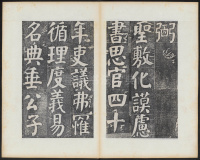 弼
聖敷化謨慮
書思官四十
年吏議弗罹
循理度義易
名典垂公子